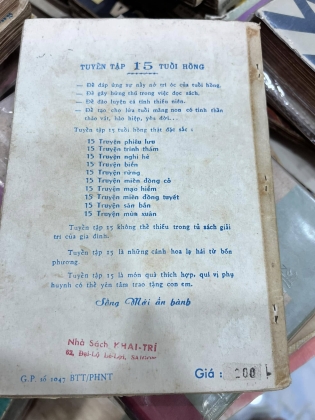 TUYỂN TẬP 15 TUỔI HỒNG
— Để đáp ứng sự nảy nở trí óc của tuổi hồng.
— Để gây hứng thú trong việc đọc sách.
— Để đào luyện cá tính thiếu niên.
— Để tạo cho lứa tuổi măng non có tinh thần
tháo vát, hào hiệp, yêu đời...
Tuyển tập 15 tuổi hồng thật đặc sắc :
15 Truyện phiêu lưu
15 Truyện trinh thám
15 Truyện nghỉ hè
15 Truyện biển
15 Truyện rừng
15 Truyện miền đồng cỏ
15 Truyện mạo hiểm
15 Truyện miền đồng tuyết
15 Truyện săn bắn
15 Truyện mùa xuân
Tuyển tập 15 không thể thiếu trong tủ sách giải
trí của gia đình.
Tuyển tập 15 là những cánh hoa lạ hái từ bốn
phương.
Tuyển tập 15 là món quà thích hợp, quí vị phụ
huynh có thể yên tâm trao tặng con em.
Sống Mới ấn hành
Nhà Sách KHAI-TRÍ
62, Đại-Lộ Lê-Lợi, SAIGON
Giá : 200
G.P. số 1047 BTT/PHNT